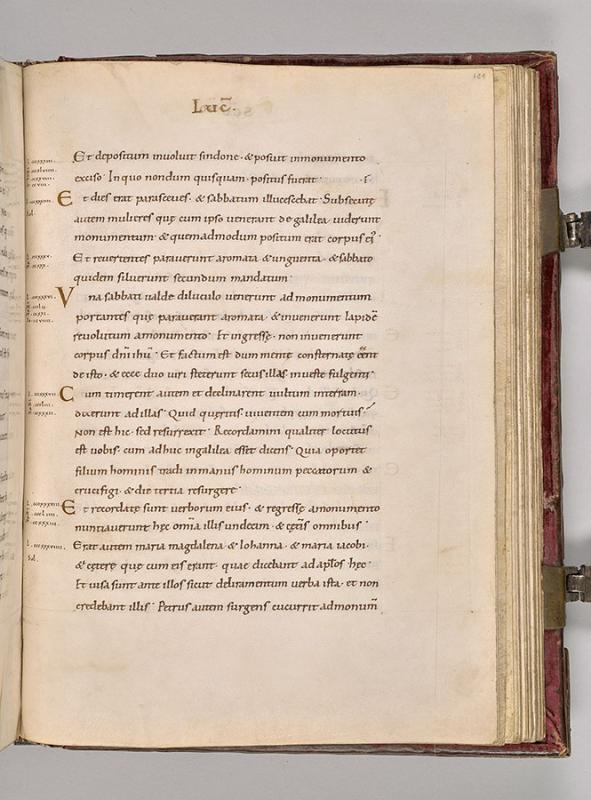 Luc̄.
Et depositum inuoluit sindone · & posuit inmonumento
exciso · In quo nondum quisquam · positus fuerat ·
Et dies erat parasceues · & sabbatum illucescebat · Subsecutę
autem mulieres quę cum ipso uenerant de galilea · uiderunt
monumentum · & quemadmodum positum erat corpus ei;
Et reuertentes parauerunt aromata · & unguenta · & sabbato
quidem siluerunt secundum mandatum ·
Vna sabbati ualde diluculo uenerunt admonumentum
portantes quę parauerant aromata · & inuenerunt lapidē
reuolutum amonumento · Et ingressę · non inuenerunt
corpus dnī ihū · Et factum est dum mente consternatę eēnt
de isto · & ecce duo uiri steterunt secus illas inueste fulgenti ·
Cum timerent autem et declinarent uultum interram ·
dixerunt adillas · Quid queritis uiuentem cum mortuis
Non est hic · sed resurrexit · Recordamini qualiter locutus
est uobis · cum adhuc ingalilea esset dicens · Quia oportet
filium hominis tradi inmanus hominum peccatorum · &
crucifigi · & die tertia resurgere ·
Et recordatę sunt uerborum eius · & regressę amonumento
nuntiauerunt hęc omīa illis undecim · & cęt̄is omnibus ·
Erat autem maria magdalena · & Iohanna · & maria iacobi ·
& cęterę quę cum eis erant · quae dicebant ad apłos hęc ·
Et uisa sunt ante illos sicut deliramentum uerba ista · et non
credebant illis · Petrus autem surgens cucurrit admonum̄